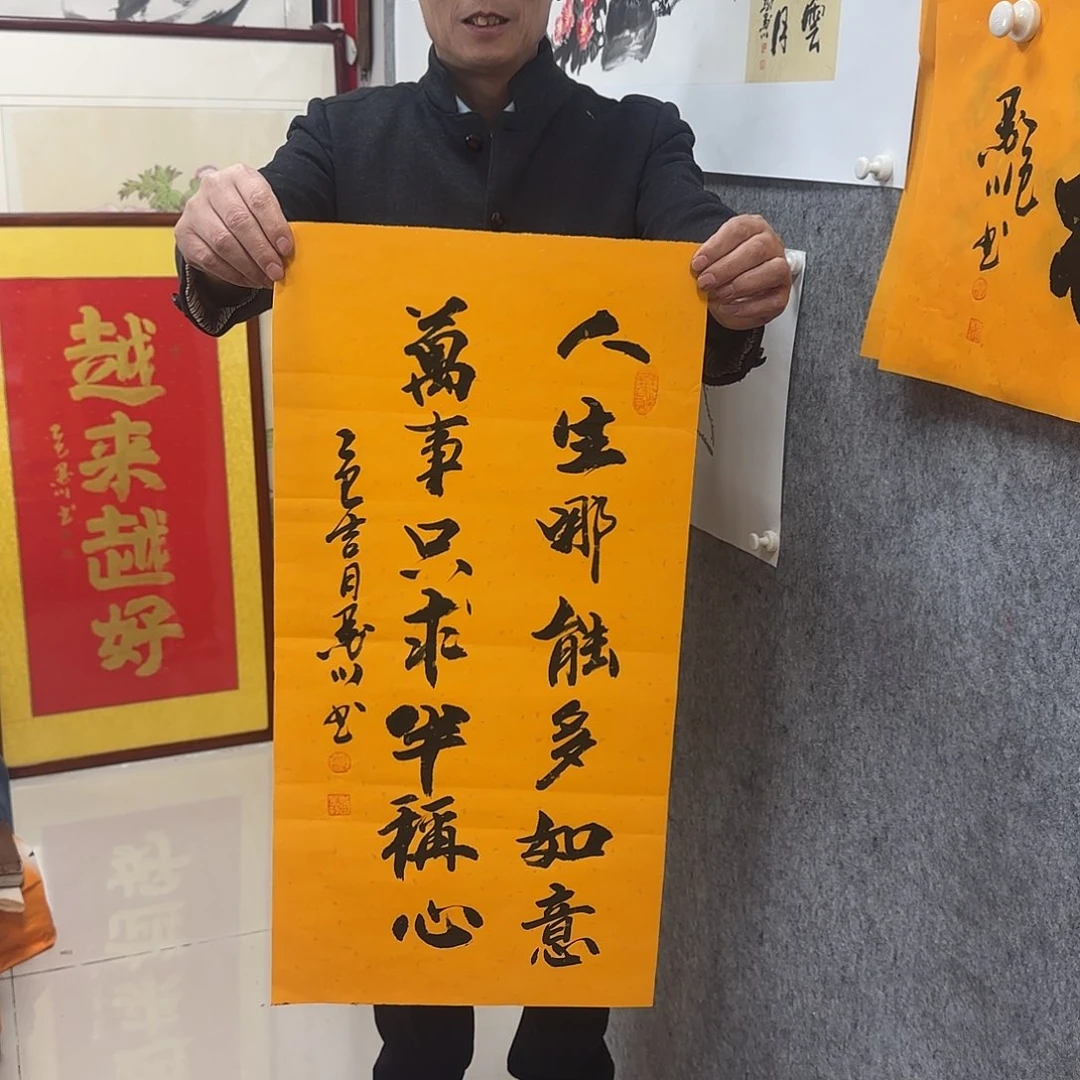 人生哪能多如意
萬事只求半稱心
乙巳吉月墨川书
越来越好
乙巳墨川书
墨川书
雲
月